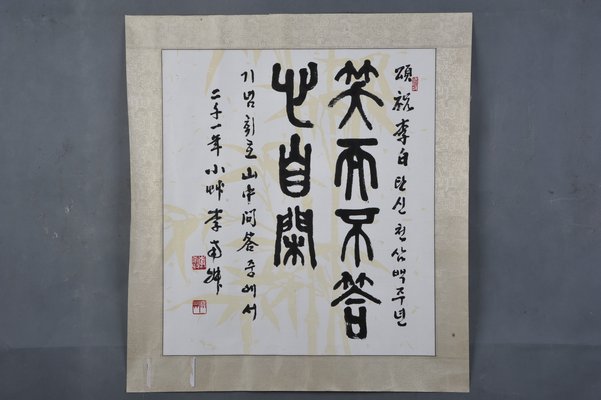 頌祝 李白 탄신 천삼백주년
笑而不答
心自閑
기념휘호 山中問答 중에서
二千一年 小艸 李